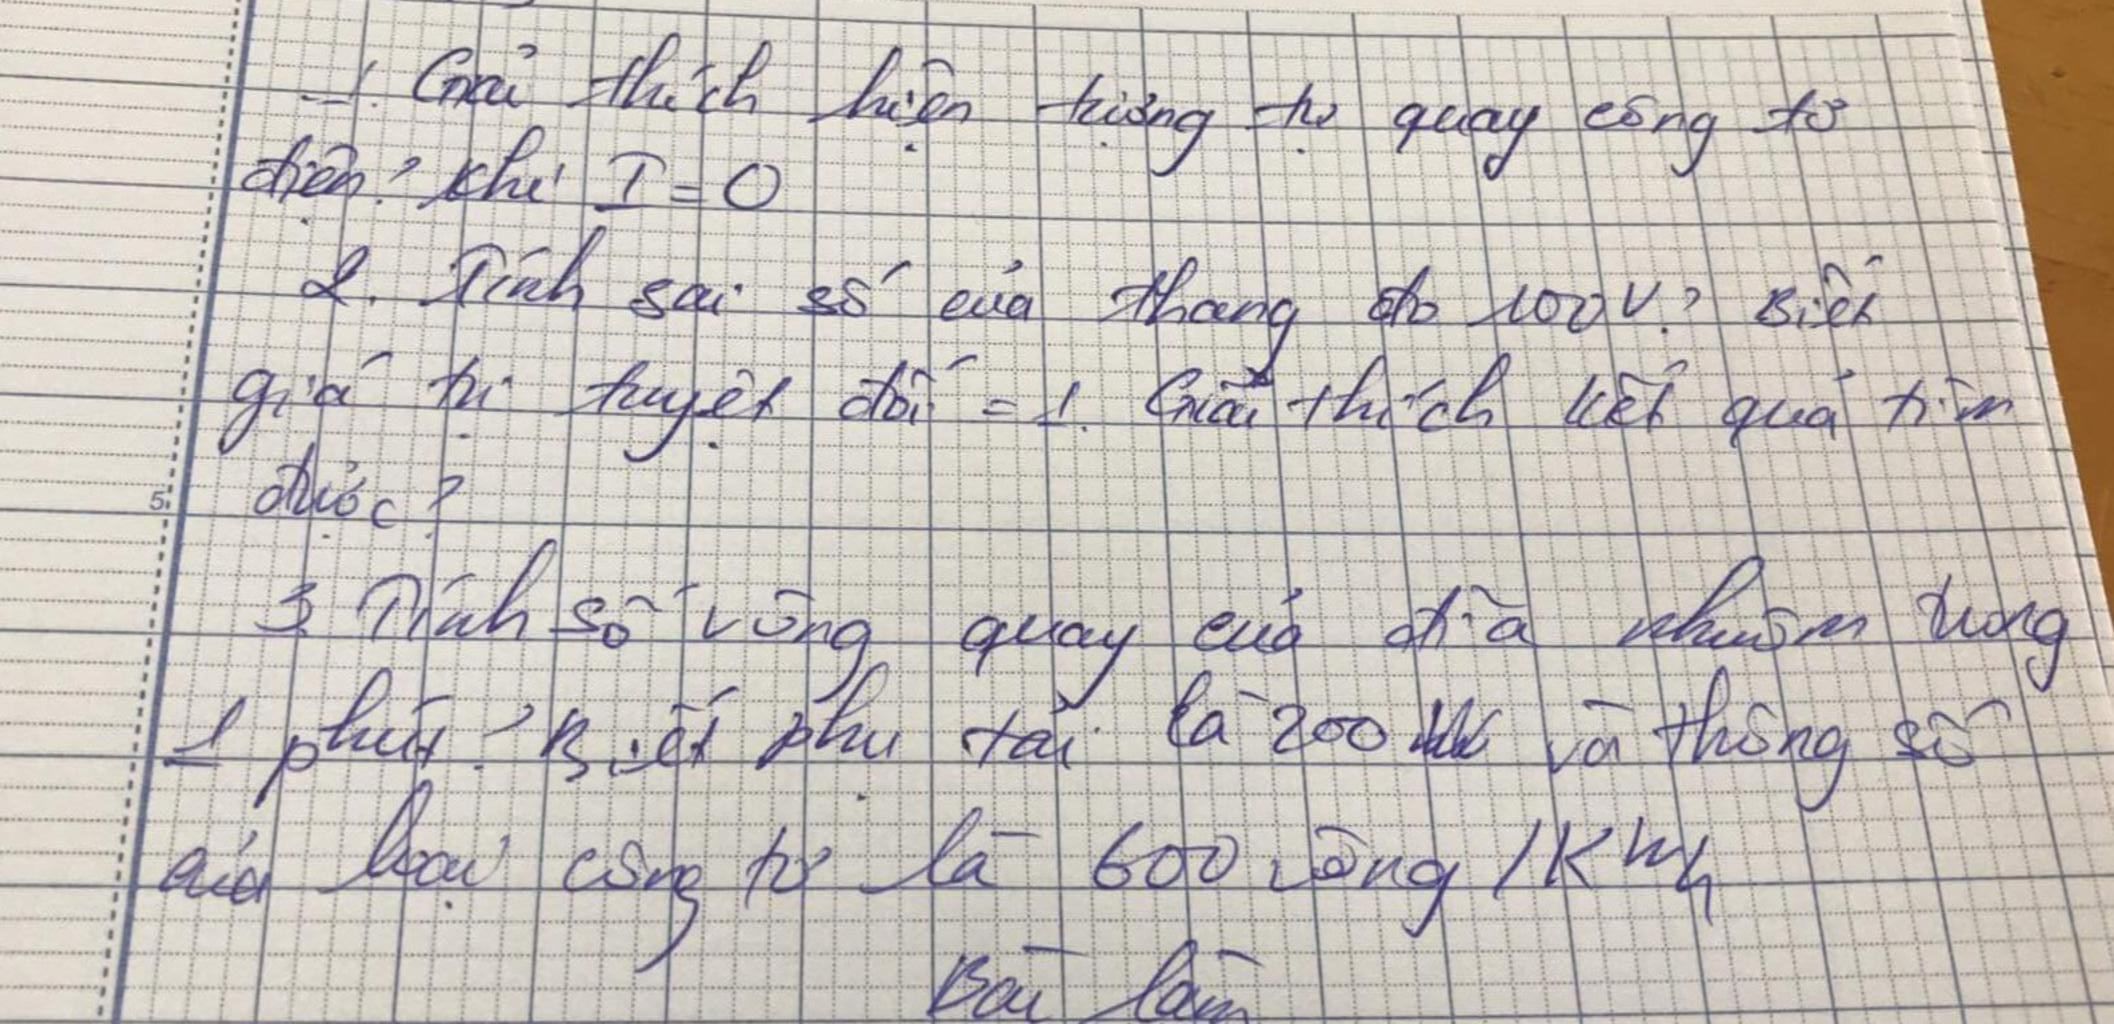 1. Giải thích hiện tượng tự quay công tơ
điện? khi I = 0
2. Tính sai số của thang đo 100V? Biết
giá trị tuyệt đối = 1. Giải thích kết quả tìm
được?
3 Tính số vòng quay của đĩa nhuôm trong
1 phút? Biết phụ tải là 200 và thông số
của loại công tơ là 600 vòng /KWh
Bài làm
5